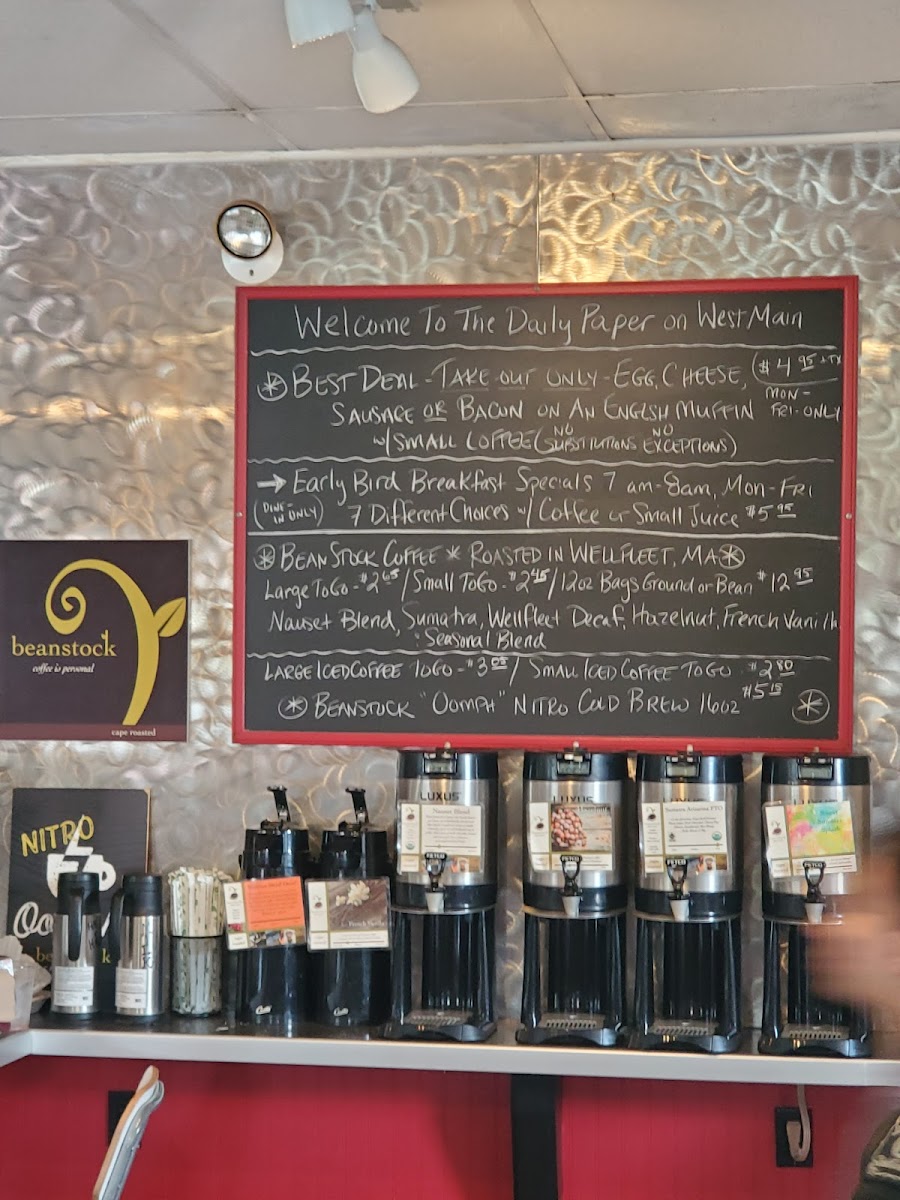 Welcome To The Daily Paper on West Main
BEST DEAL - TAKE OUT ONLY - EGG, CHEESE, $4.95 + TX
SAUSAGE OR BACON ON AN ENGLSH MUFFIN MON-FRI-ONLY
w/ SMALL COFFEE (NO SUBSTITUTIONS NO EXCEPTIONS)
→ Early Bird Breakfast Specials 7 am-8am, Mon-Fri
(DINE-IN ONLY) 7 Different Choices w/ Coffee or Small Juice $5.95
BEAN STOCK COFFEE * ROASTED IN WELLFLEET, MA
Large To Go - $2.65 / Small To Go - $2.45 / 12oz Bags Ground or Bean $12.95
Nauset Blend, Sumatra, Wellfleet Decaf, Hazelnut, French Vanilla
: Seasonal Blend
LARGE ICED COFFEE TO GO - $3.05 / SMALL ICED COFFEE TO GO $2.80
BEANSTOCK "OOMPH" NITRO COLD BREW 16oz $5.15
beanstock
coffee is personal
cape roasted
NITRO
LUXUS
Nauset Blend
FETCO
LUXUS
FETCO
FETCO
FETCO
French Vanilla
Curtis
Curtis